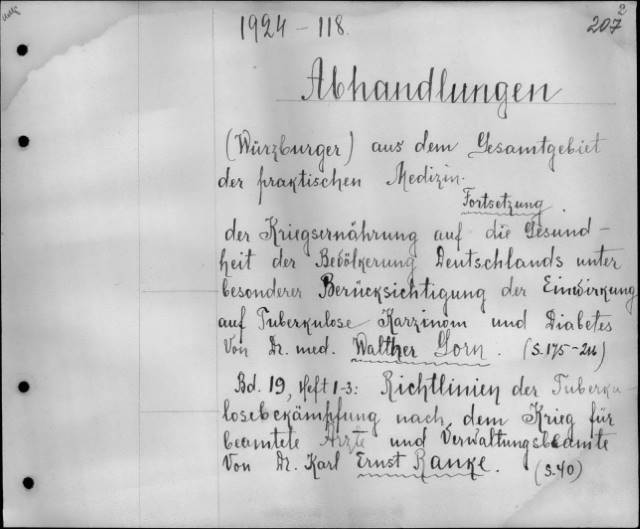 1924 - 118
207
2
Abhandlungen
(Würzburger) aus dem Gesamtgebiet
der praktischen Medizin.
Fortsetzung.
der Kriegsernährung auf die Gesund-
heit der Bevölkerung Deutschlands unter
besonderer Berücksichtigung der Einwirkung
auf Tuberkulose Karzinom und Diabetes
Von Dr. med. Walther Gorn. (S. 175-211)
Bd. 19, Heft 1-3: Richtlinien der Tuberku-
losebekämpfung nach dem Krieg für
beamtete Ärzte und Verwaltungsbeamte
Von Dr. Karl Ernst Ranke. (S. 40)